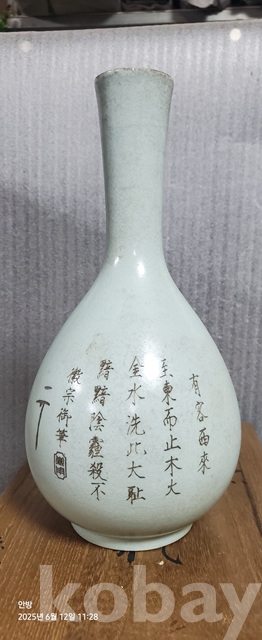 有客西來
至東而止木火
金水洗此大恥
黯黯陰霾殺不
徽宗御筆
안방
2025년 6월 12일 11:28
kobay